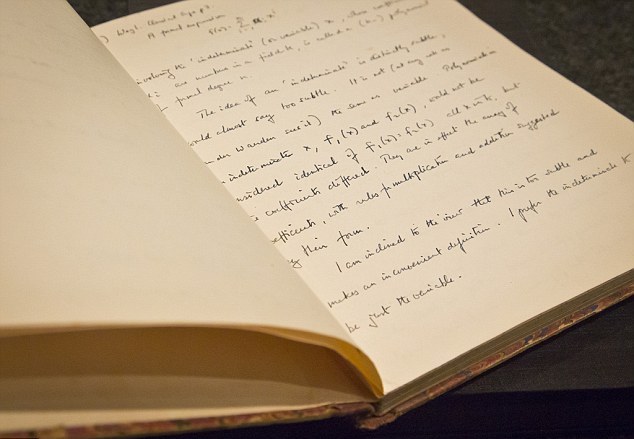 ) Weyl. Classical Groups p.
A formal expression
f(x) = Σ aᵢ xⁱ
involving the 'indeterminate' (or variable) x, whose coefficients
are numbers in a field k, is called a (k-) polynomial
of formal degree n.
The idea of an 'indeterminate' is distinctly subtle,
would almost say too subtle. It is not (at any rate as
van der Waerden sees it) the same as variable. Polynomials
indeterminate x, f₁(x) and f₂(x), would not be
considered identical if f₁(x) = f₂(x) all x in k, but
coefficients differed. They are in effect the array of
coefficients, with rules for multiplication and addition suggested
by their form.
I am inclined to the view that this is too subtle and
makes an inconvenient definition. I prefer the indeterminate to
be just the variable.